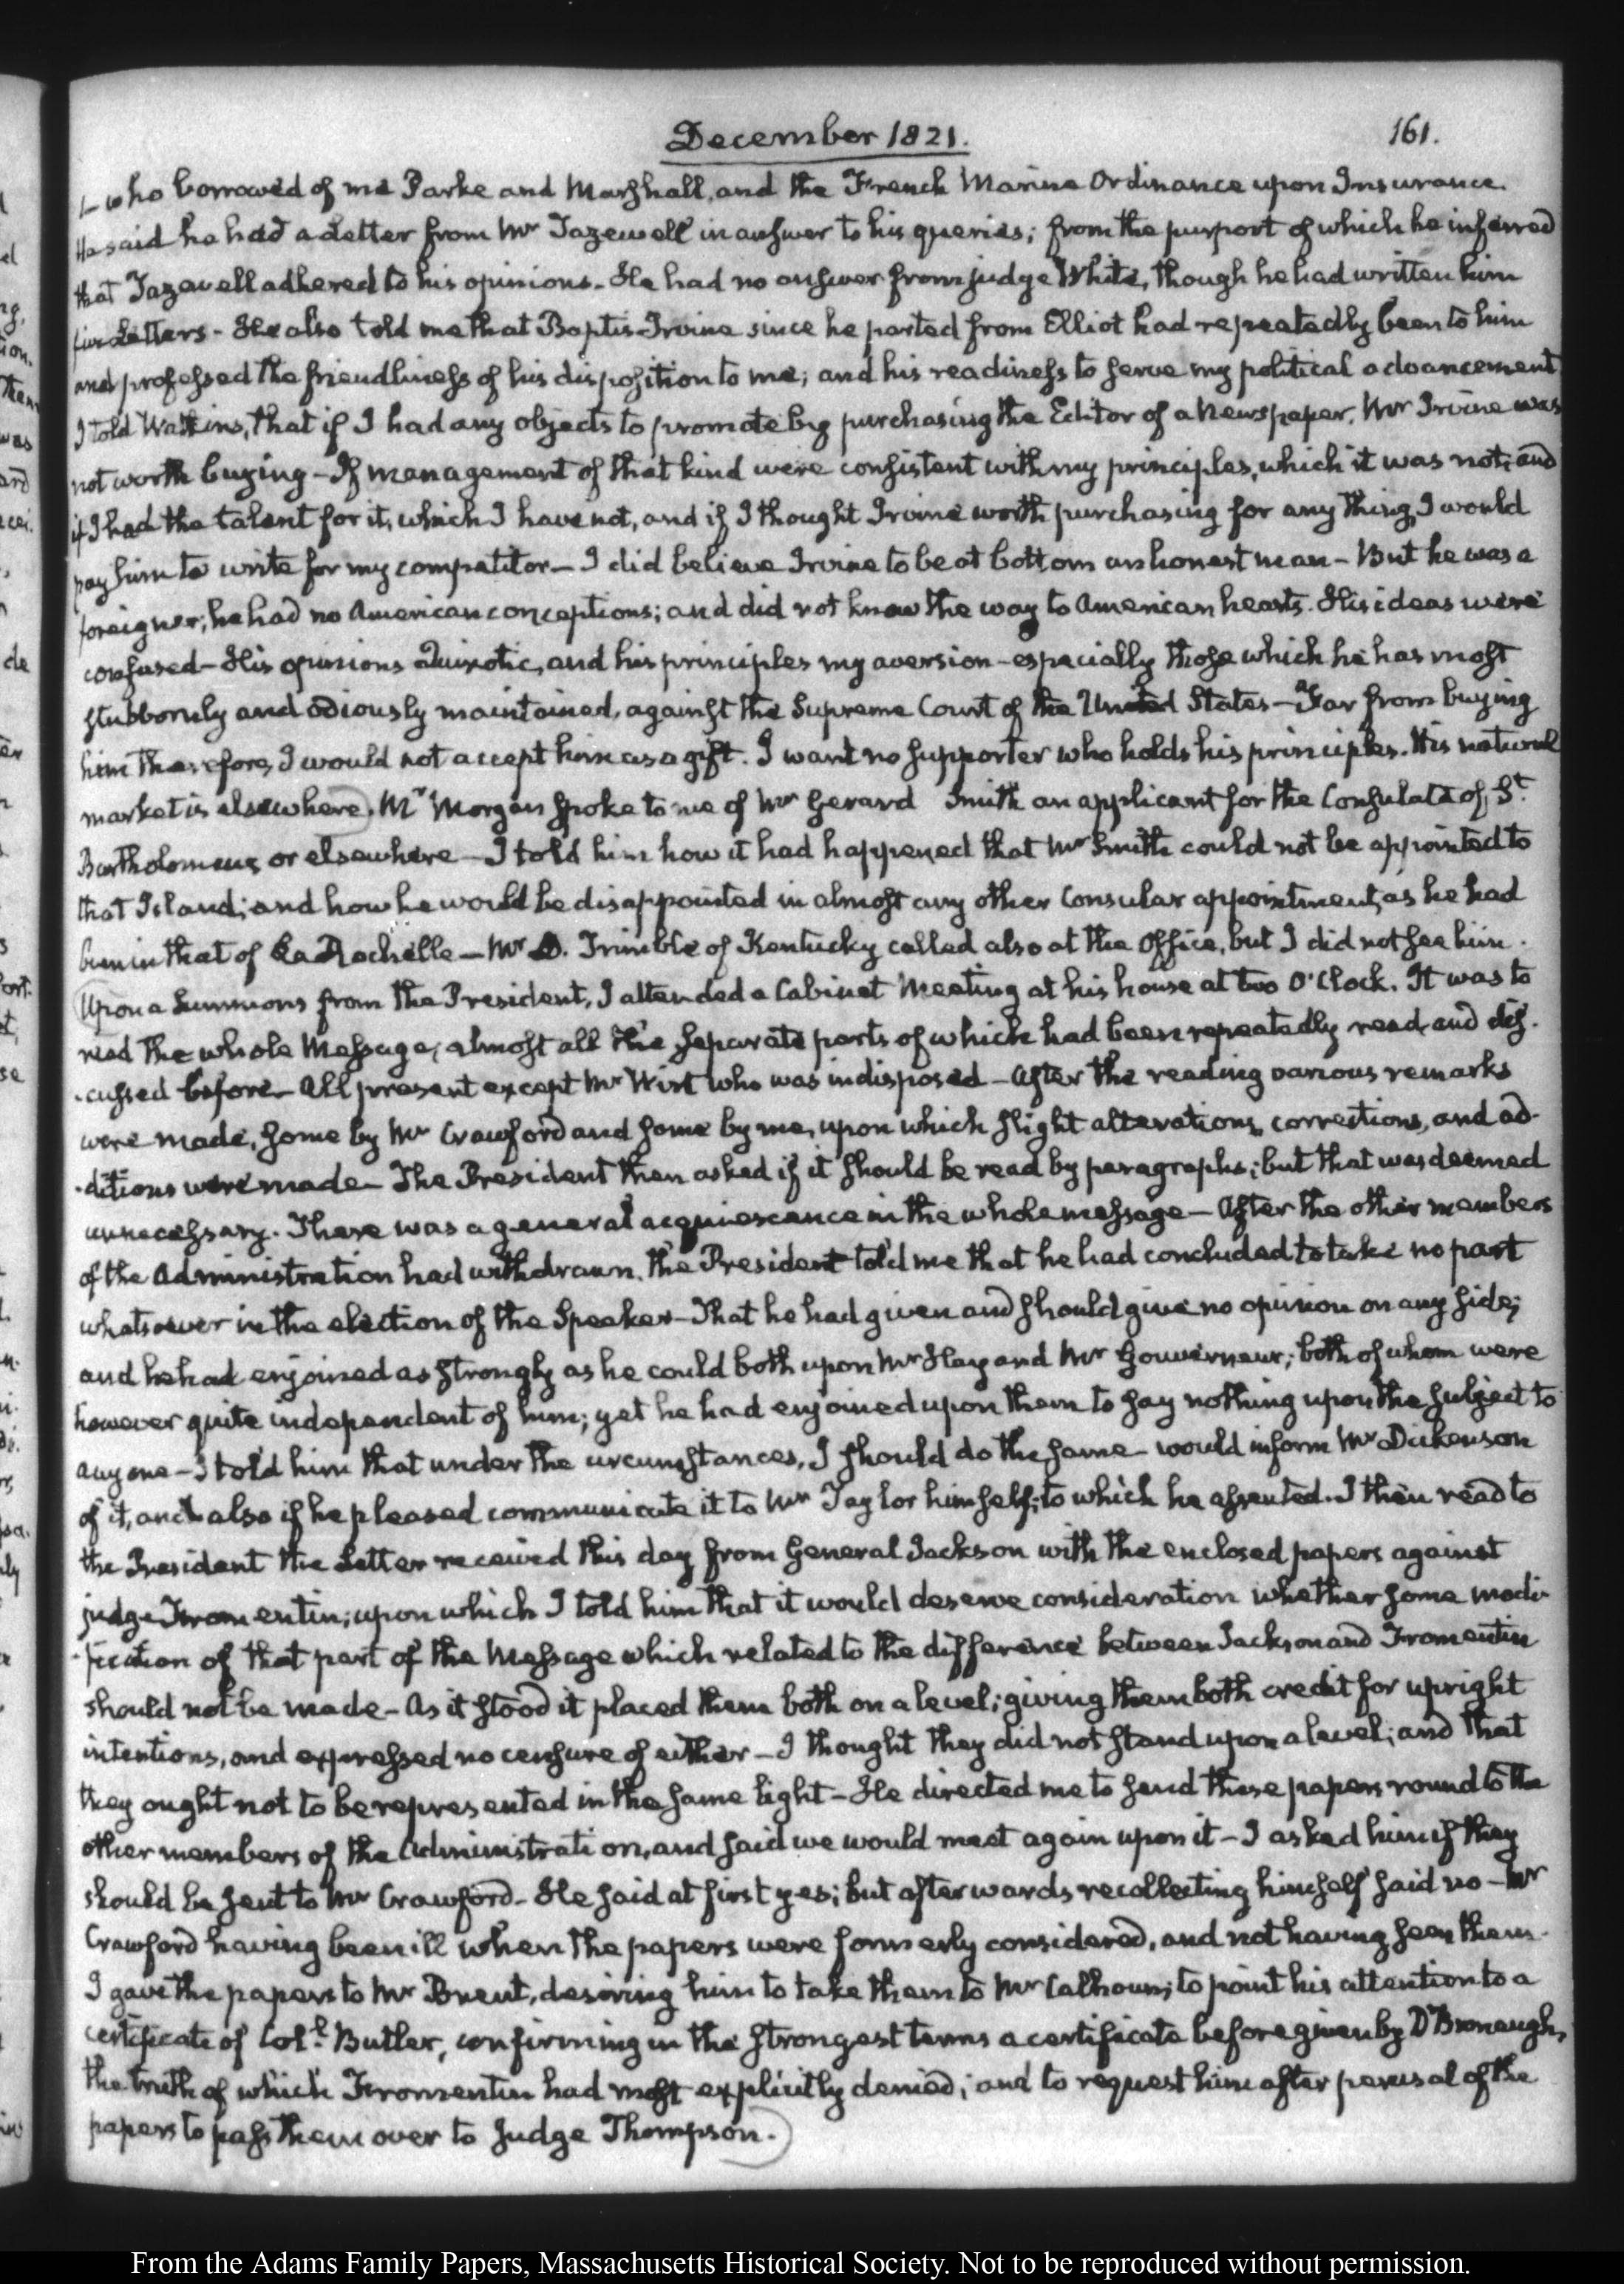 December 1821.
161.
who borrowed of me Parke and Marshall, and the French Marine Ordinance upon Insurance.
He said he had a Letter from Mr Tazewell in answer to his queries; from the purport of which he inferred
that Tazewell adhered to his opinions. He had no answer from judge White, though he had written him
Letters - He also told me that Baptis Irvine since he parted from Elliot had repeatedly been to him
and professed the friendliness of his disposition to me; and his readiness to serve my political advancement
I told Watkins, that if I had any objects to promote by purchasing the Editor of a Newspaper, Mr Irvine was
not worth buying - If management of that kind were consistent with my principles, which it was not; and
if I had the talent for it, which I have not, and if I thought Irvine worth purchasing for any thing, I would
pay him to write for my competitor - I did believe Irvine to be at bottom an honest man - But he was a
foreigner; he had no American conceptions; and did not know the way to American hearts. His ideas were
confused - His opinions Quixotic, and his principles my aversion - especially those which he has most
stubbornly and odiously maintained, against the Supreme Court of the United States - Far from buying
him therefore, I would not accept him as a gift. I want no supporter who holds his principles. His natural
market is elsewhere. Mr Morgan spoke to me of Mr Gerard Smith an applicant for the Consulate of St
Bartholomews or elsewhere - I told him how it had happened that Mr Smith could not be appointed to
that Island; and how he would be disappointed in almost any other Consular appointment, as he had
been in that of La Rochelle - Mr D. Trimble of Kentucky called also at the Office, but I did not see him.
Upon a Summons from the President, I attended a Cabinet Meeting at his house at two O'Clock. It was to
read the whole Message, almost all the separate parts of which had been repeatedly read and dis-
-cussed before - All present except Mr Wirt who was indisposed - After the reading various remarks
were made, some by Mr Crawford and some by me, upon which slight alterations, corrections, and ad-
-ditions were made - The President then asked if it should be read by paragraphs; but that was deemed
unnecessary. There was a general acquiescence in the whole message - After the other members
of the Administration had withdrawn, the President told me that he had concluded to take no part
whatsoever in the election of the Speaker - That he had given and should give no opinion on any side;
and he had enjoined as strongly as he could both upon Mr Hay and Mr Gouverneur; both of whom were
however quite independent of him; yet he had enjoined upon them to say nothing upon the subject to
any one - I told him that under the circumstances, I should do the same - would inform Mr Dickenson
of it, and also if he pleased communicate it to Mr Taylor himself; to which he assented. I then read to
the President the Letter received this day from General Jackson with the enclosed papers against
judge Fromentin; upon which I told him that it would deserve consideration whether some modi-
-fication of that part of the Message which related to the difference between Jackson and Fromentin
should not be made - As it stood it placed them both on a level; giving them both credit for upright
intentions, and expressed no censure of either - I thought they did not stand upon a level; and that
they ought not to be represented in the same light - He directed me to send these papers round to the
other members of the Administration, and said we would meet again upon it - I asked him if they
should be sent to Mr Crawford - He said at first yes; but afterwards recollecting himself said no - Mr
Crawford having been ill when the papers were formerly considered, and not having seen them.
I gave the papers to Mr Brent, desiring him to take them to Mr Calhoun; to point his attention to a
certificate of Coll. Butler, confirming in the strongest terms a certificate before given by Dr Bronaugh,
the truth of which Fromentin had most explicitly denied; and to request him after perusal of the
papers to pass them over to Judge Thompson.
From the Adams Family Papers, Massachusetts Historical Society. Not to be reproduced without permission.